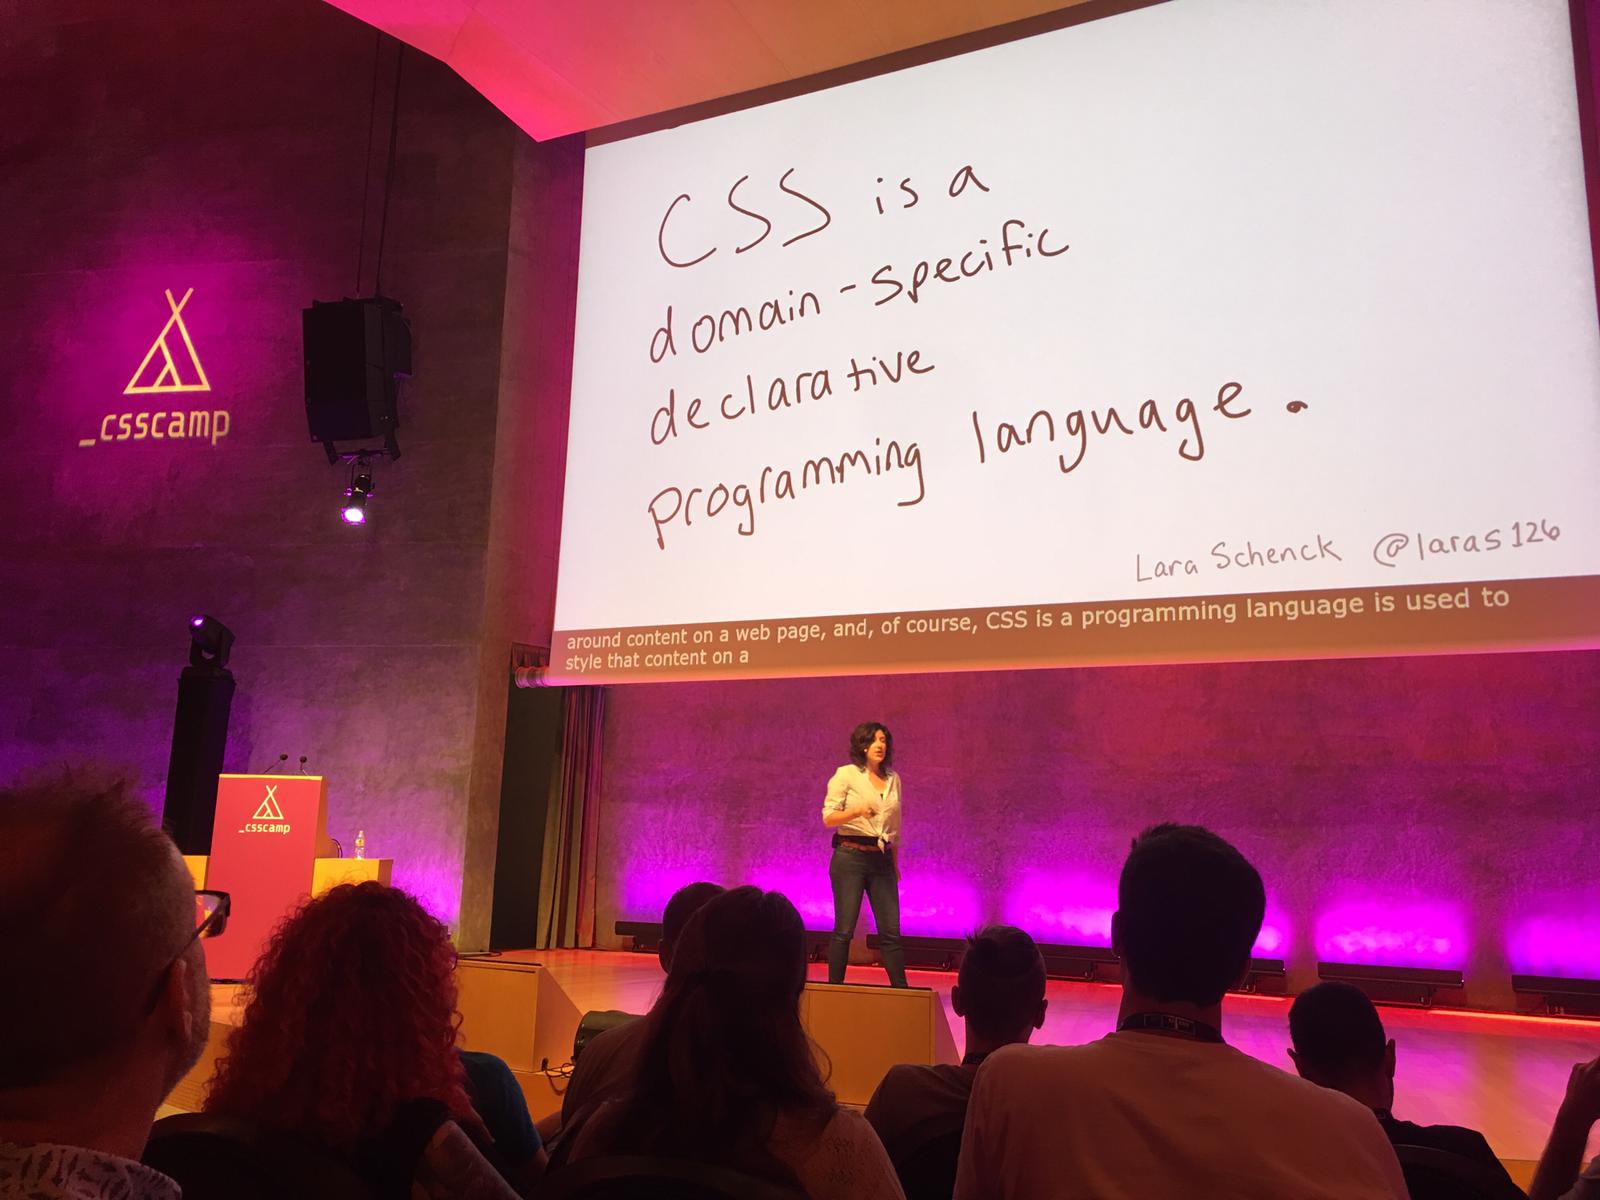 CSS is a
domain-specific
declarative
programming language.
Lara Schenck @laras126
around content on a web page, and, of course, CSS is a programming language is used to
style that content on a
_csscamp
_csscamp